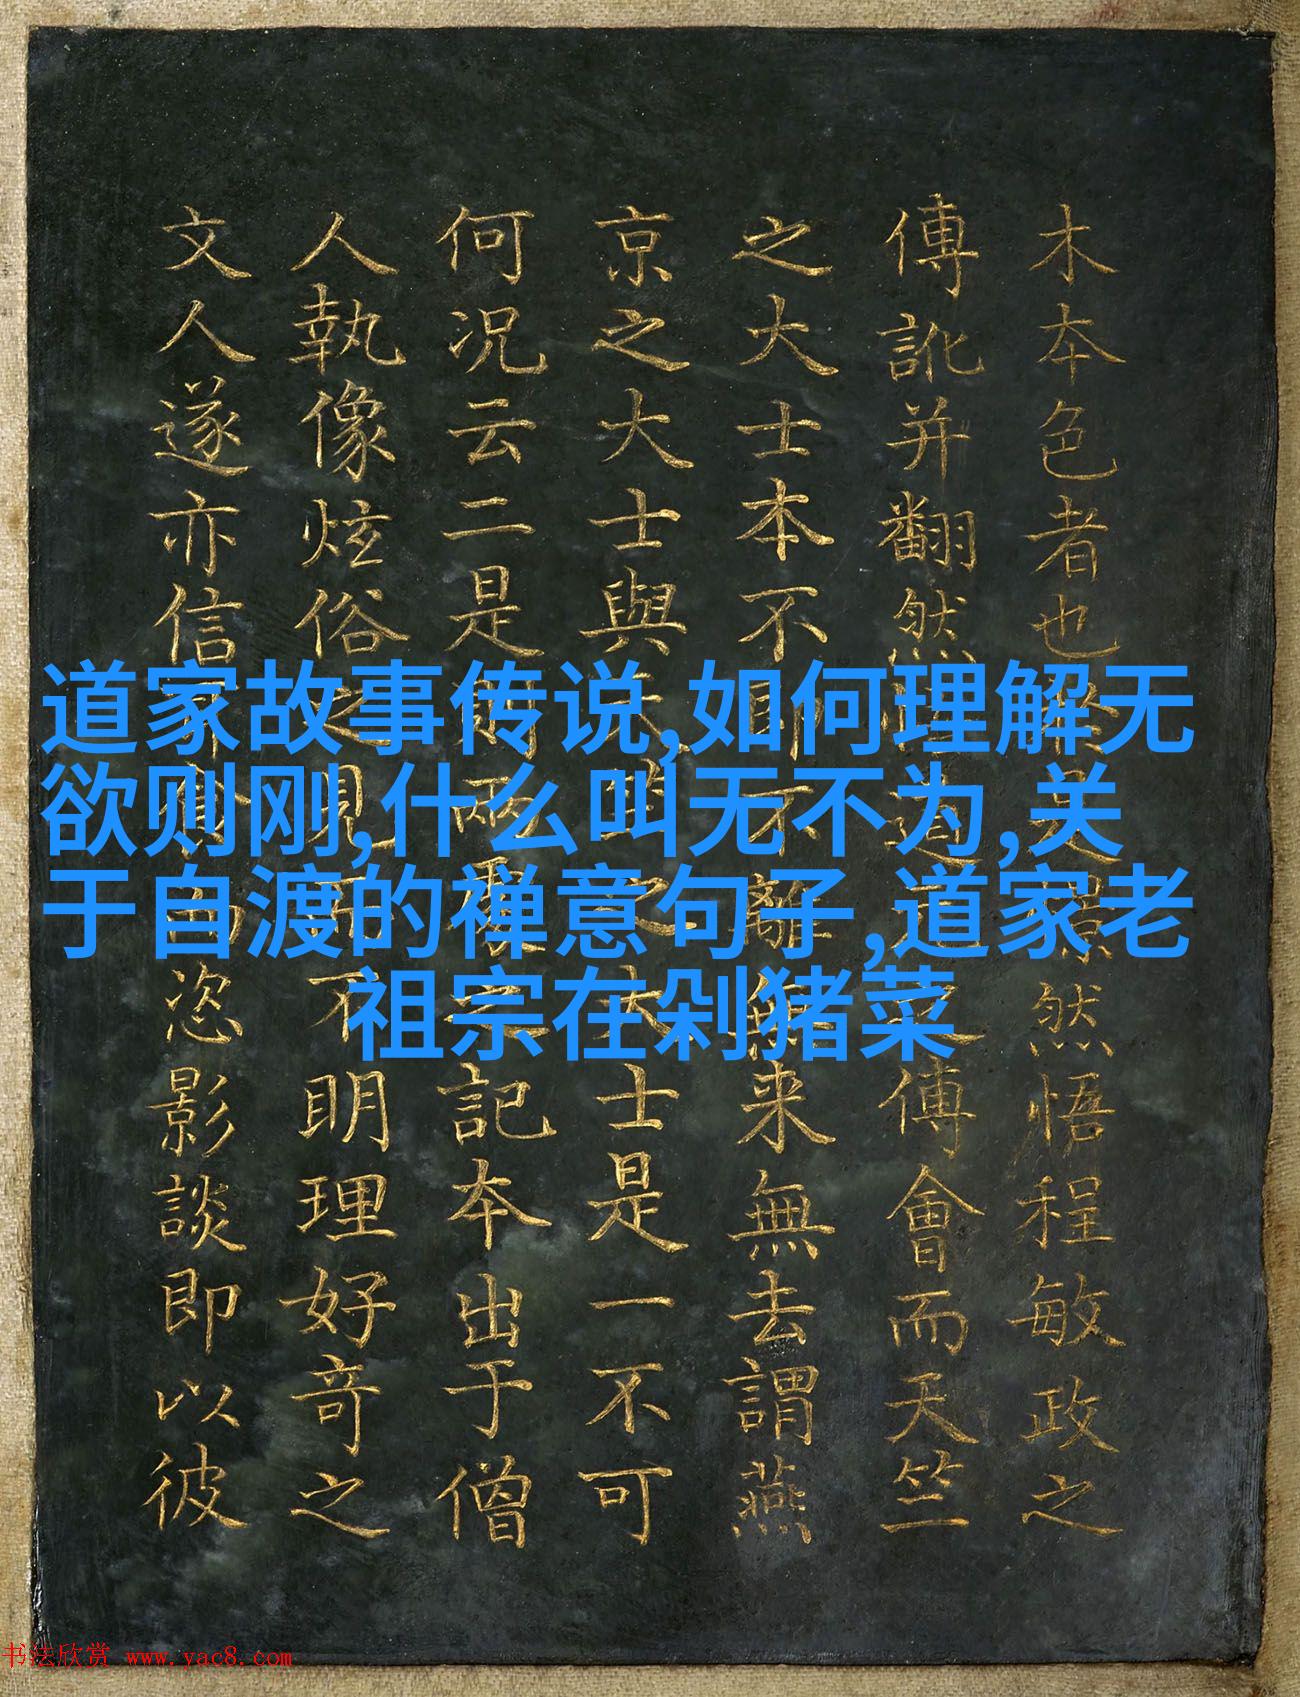 木本色者也景然悟程敏政之
傳訛并翻然道之傅會而天竺
之大士本不即不離無来無去謂燕
京之大士與之大士是一不可
何况云二是則兩之記本出于僧
人執像炫俗之見而不明理好奇之
文人遂亦信恣影談即以彼
道家故事传说,如何理解无
欲则刚,什么叫无不为,关
于自渡的禅意句子,道家老
祖宗在剁猪菜
书法欣赏 www.yac8.com